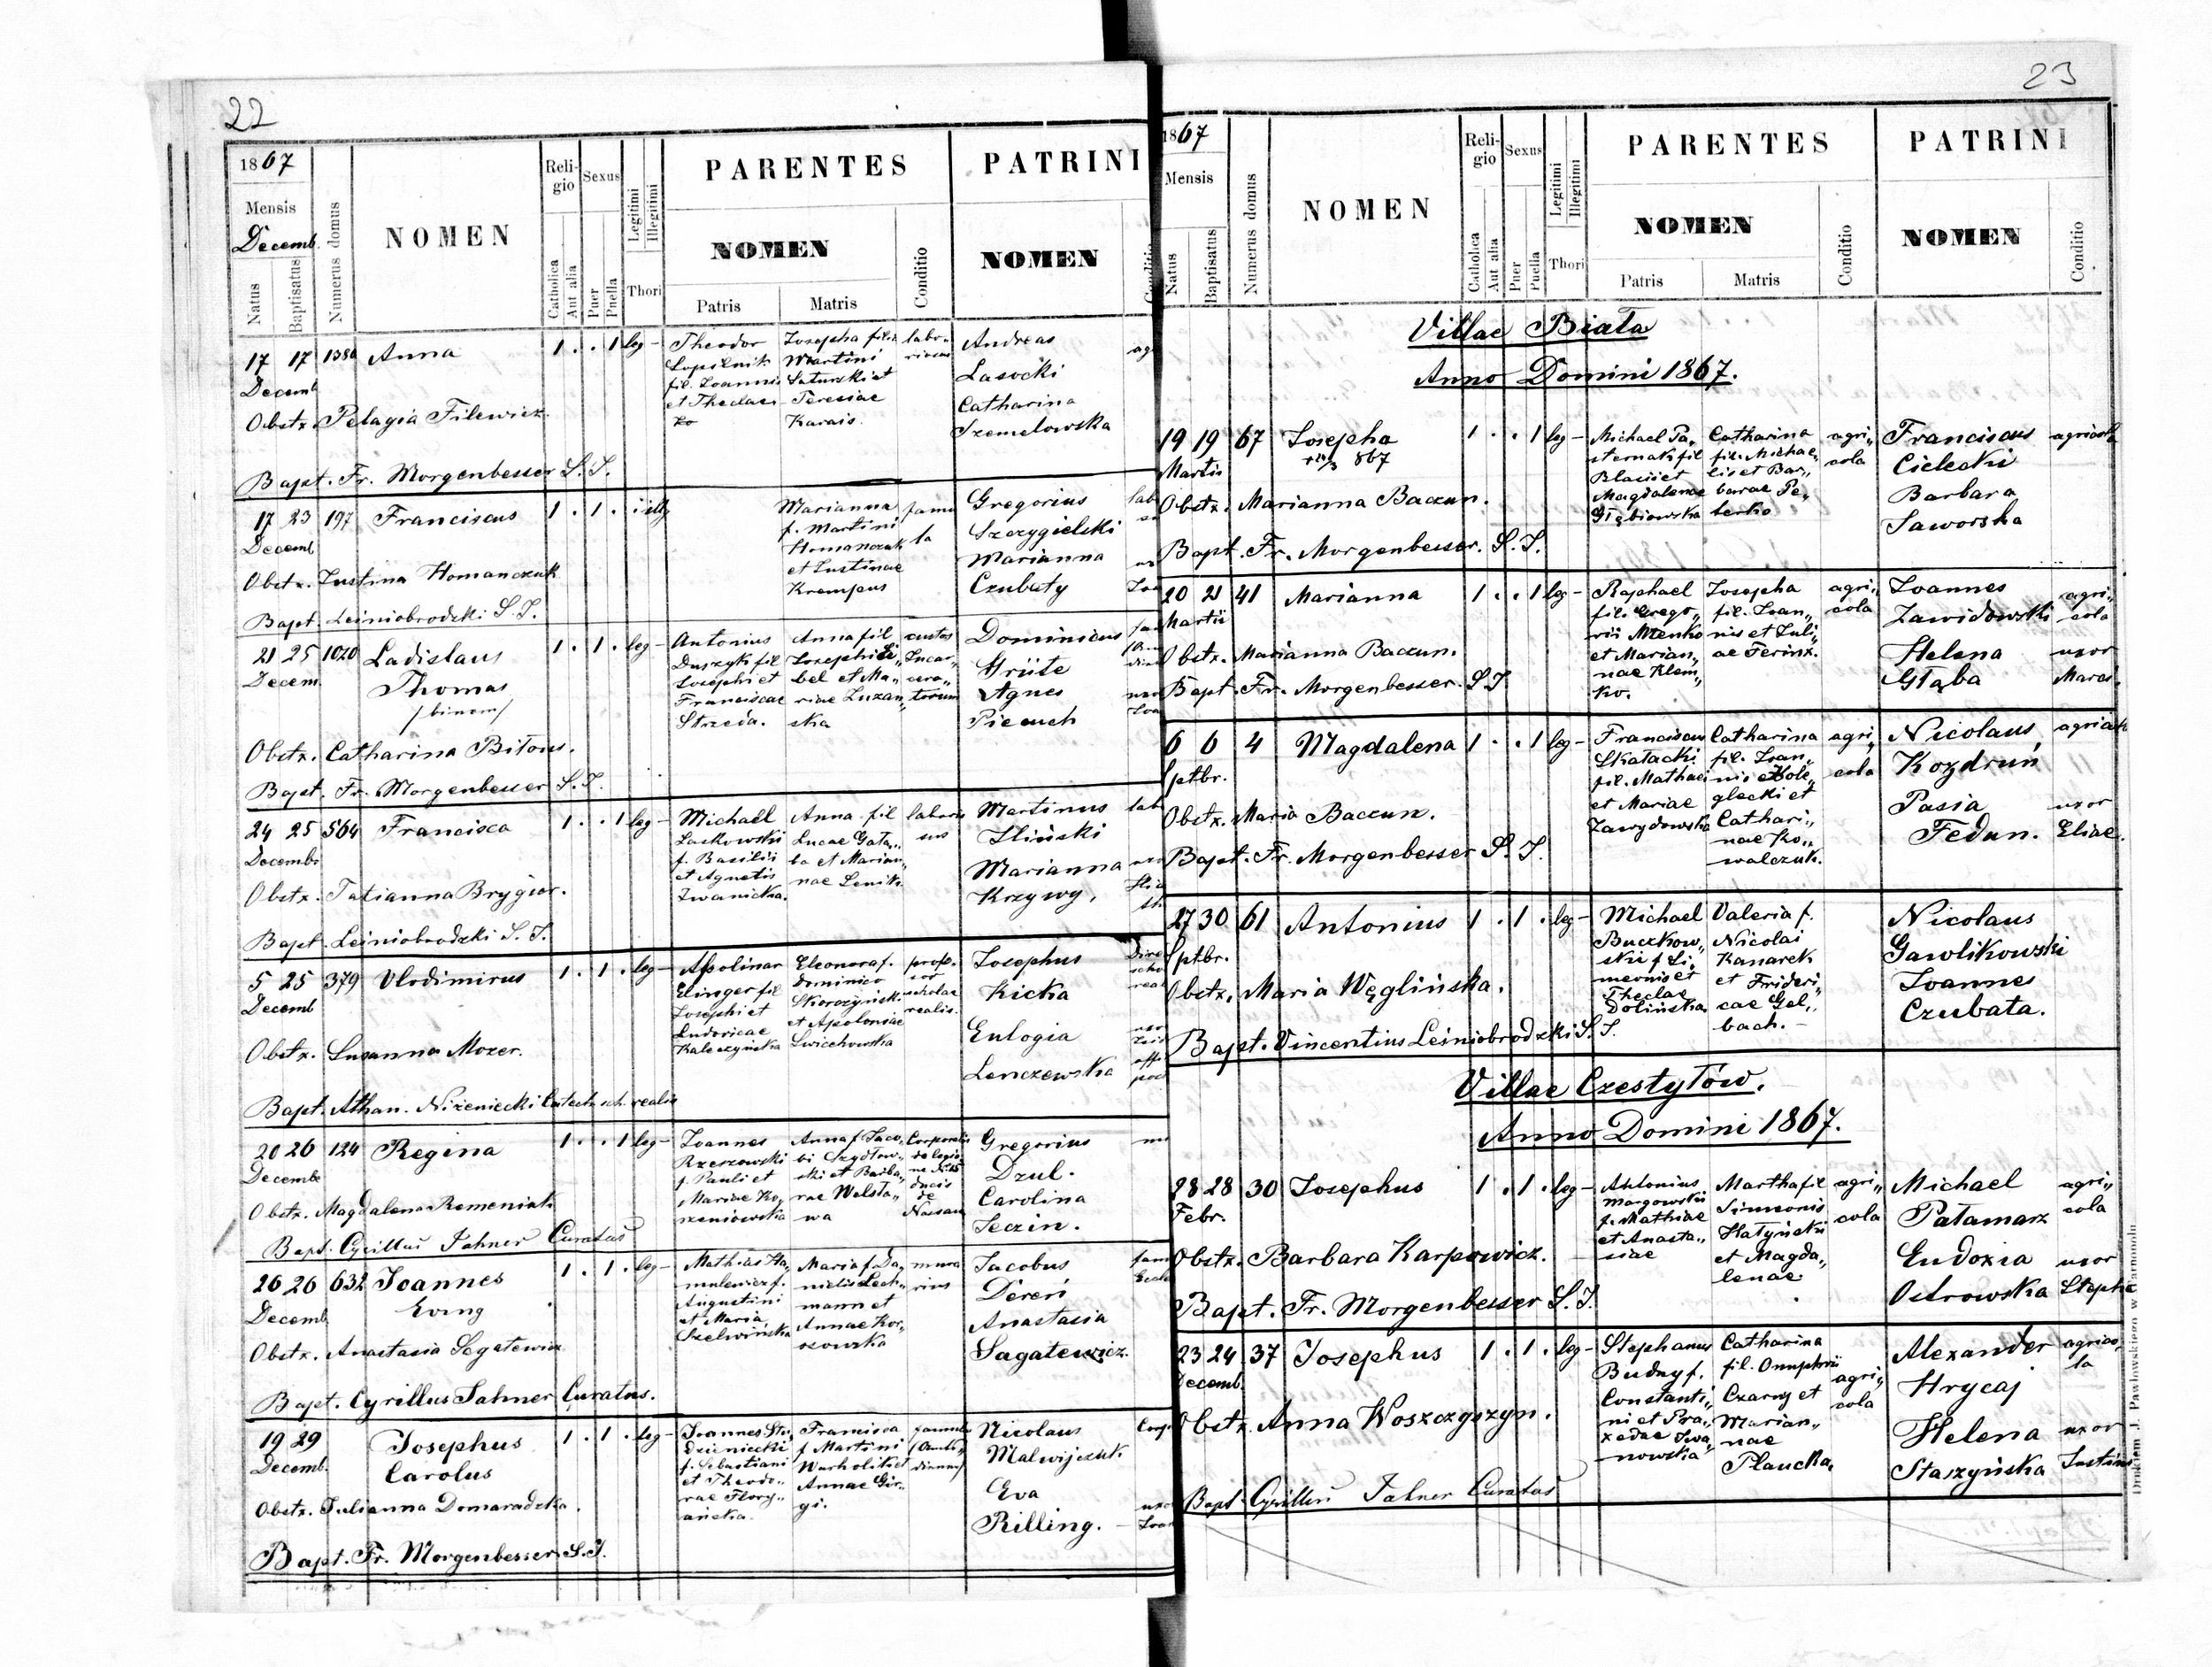 22
1867
Mensis
Decemb.
Natus
Baptisatus
Numerus domus
NOMEN
Religio
Catholica
Aut alia
Sexus
Puer
Puella
Legitimi
Illegitimi
Thori
PARENTES
NOMEN
Patris
Matris
Conditio
PATRINI
NOMEN
Conditio
17 17 1380 Anna 1 . . 1 leg-
Decemb
Theodor
fil. Joannis
et Theclae
Josepha filia
Martini
Teresiae
Karais.
Andreas
Lasocki
Catharina
Szemelowska
Obstx. Pelagia Filewicz.
Bapt. Fr. Morgenbesser S.J.
17 23 197 Franciscus 1 . 1 . illeg
Decemb
Marianna
f. Martini
Homanczuk
et Justinae
Krempus
famu
la
Gregorius
Szczygielski
Marianna
Czubaty
Obstx. Justina Homanczuk
Bapt. Leśniobrodzki S.J.
21 25 1020 Ladislaus 1 . 1 . leg-
Decem.
Thomas
/binom/
Antonius
Duszyk fil
Josephi et
Franciscae
Strzeda.
Anna fil
Josephi Li„
bel et Ma„
riae Luzan„
ska
custos
Incar„
cera„
torum
Dominicus
Striite
Agnes
Piecuch
Obstx. Catharina Bitous.
Bapt. Fr. Morgenbesser S.J.
24 25 564 Francisca 1 . . 1 leg-
Decembr
Michael
Laskowski
f. Basilii
et Agnetis
Iwanicka.
Anna fil
Lucae Gata„
ba et Marian„
nae Senik
labori
sus
Martinus
Iliński
Marianna
Krzywy,
Obstx. Tatianna Brygior.
Bapt. Leśniobrodzki S.J.
5 25 379 Vlodimirus 1 . 1 . leg-
Decemb
Apolinar
Elinger fil
Josephi et
Ludovicae
Kaleczyńska
Eleonora f.
Dominico
Skorczyński
et Apoloniae
Swiechowska
profes.
sor
scholae
realis.
Josephus
Kicka
Eulogia
Lenczewska
Obstx. Susanna Mozer.
Bapt. Athan. Niżeniecki Catech. sch. realis
20 26 124 Regina 1 . . 1 leg-
Decembr
Joannes
Rzeszowski
f. Pauli et
Mariae Ko„
rzeniowska
Anna f. Jaco„
bi Szydłow„
ski et Barba„
rae Welsta„
wa
Corporalis
de legio
ne
ducis
de
Nassau
Gregorius
Dzul.
Carolina
Seczin.
Obstx. Magdalena Remeniak
Bapt. Cyrillus Jahner Curatus
26 26 632 Joannes 1 . 1 . leg-
Decemb
Evng
Mathias Ha„
mulewicz f.
Augustini
et Maria
Szelwińska
Maria f. Da„
nielis Lech„
mann et
Annae Kor„
sowska
mura
rius
Jacobus
Dereń
Anastasia
Sagatewicz.
Obstx. Anastasia Segatewicz
Bapt. Cyrillus Jahner Curatus.
19 29 Josephus 1 . 1 . leg-
Decemb.
Carolus
Joannes Stu„
dzieniecki
f. Sebastiani
et Theodo„
rae Flory„
ańska.
Francisca
f. Martini
Warholik et
Annae Gör„
gi.
Nicolaus
Malwijczuk.
Eva
Rilling.
Obstx. Julianna Domaradzka.
Bapt. Fr. Morgenbesser S.J.
23
1867
Mensis
Natus
Baptisatus
Numerus domus
NOMEN
Religio
Catholica
Aut alia
Sexus
Puer
Puella
Legitimi
Illegitimi
Thori
PARENTES
NOMEN
Patris
Matris
Conditio
PATRINI
NOMEN
Conditio
Villae Biała
Anno Domini 1867.
19 19 67 Josepha 1 . . 1 leg-
Martis
867
Michael Pa„
sternak fil
Blasii et
Magdalenae
Głębiowska
Catharina
fil. Michae„
lis et Bar„
barae Pe„
terko
agri„
cola
Franciscus
Cielecki
Barbara
Jaworska
agricola
Obstx. Marianna Baczun.
Bapt. Fr. Morgenbesser. S.J.
20 21 41 Marianna 1 . . 1 leg-
Martii
Raphael
fil. Grego„
rii Menko
et Marian„
nae Klem„
ko.
Josepha
fil. Joan„
nis et Juli„
ae Ferinx.
agri„
cola
Joannes
Zawidowski
Helena
Głąba
agri„
cola
uxor
Marci
Obstx. Marianna Baczun.
Bapt. Fr. Morgenbesser. S.J
6 6 4 Magdalena 1 . . 1 leg-
Sptbr.
Franciscus
Skatacki
fil. Mathaei
et Mariae
Zawydowska
Catharina
fil. Joan„
nis Hole„
glecki et
Cathari„
nae Ko„
walczuk.
agri„
cola
Nicolaus
Kozdruń
Pasia
Fedun.
agricola
uxor
Eliae.
Obstx. Maria Baczun.
Bapt. Fr. Morgenbesser S.J.
27 30 61 Antonius 1 . 1 . leg-
Sptbr.
Michael
Buczkow„
ski f. Si„
meonis et
Theclae
Dolińska.
Valeria f.
Nicolai
Kanarek
et Frideri„
cae Gel„
bach.
Nicolaus
Gawlikowski
Joannes
Czubata.
Obstx. Maria Węglińska.
Bapt. Vincentius Leśniobrodzki S.J.
Villae Czestyłów.
Anno Domini 1867.
28 28 30 Josephus 1 . 1 . leg-
Febr.
Antonius
Margowski
f. Mathiae
et Anasta„
siae
Martha fil
Simeonis
Hatyński
et Magda„
lenae
agri„
cola
Michael
Patamarz
Eudoxia
Ostrowska
agri„
cola
uxor
Stepha
Obstx. Barbara Karpowicz.
Bapt. Fr. Morgenbesser S.J.
23 24 37 Josephus 1 . 1 . leg-
Decemb
Stephanus
Budny f.
Constanti„
ni et Pra„
xedae Iwa„
nowska
Catharina
fil. Onuphrii
Czarny et
Marian„
nae
Plaucka.
agri„
cola
Alexander
Hrycaj
Helena
Staszyńska
agrico„
la
uxor
Justini
Obstx. Anna Woszczyszyn.
Bapt. Cyrillus Jahner Curatus
Drukiem J. Pawłowskiego w Tarnopolu